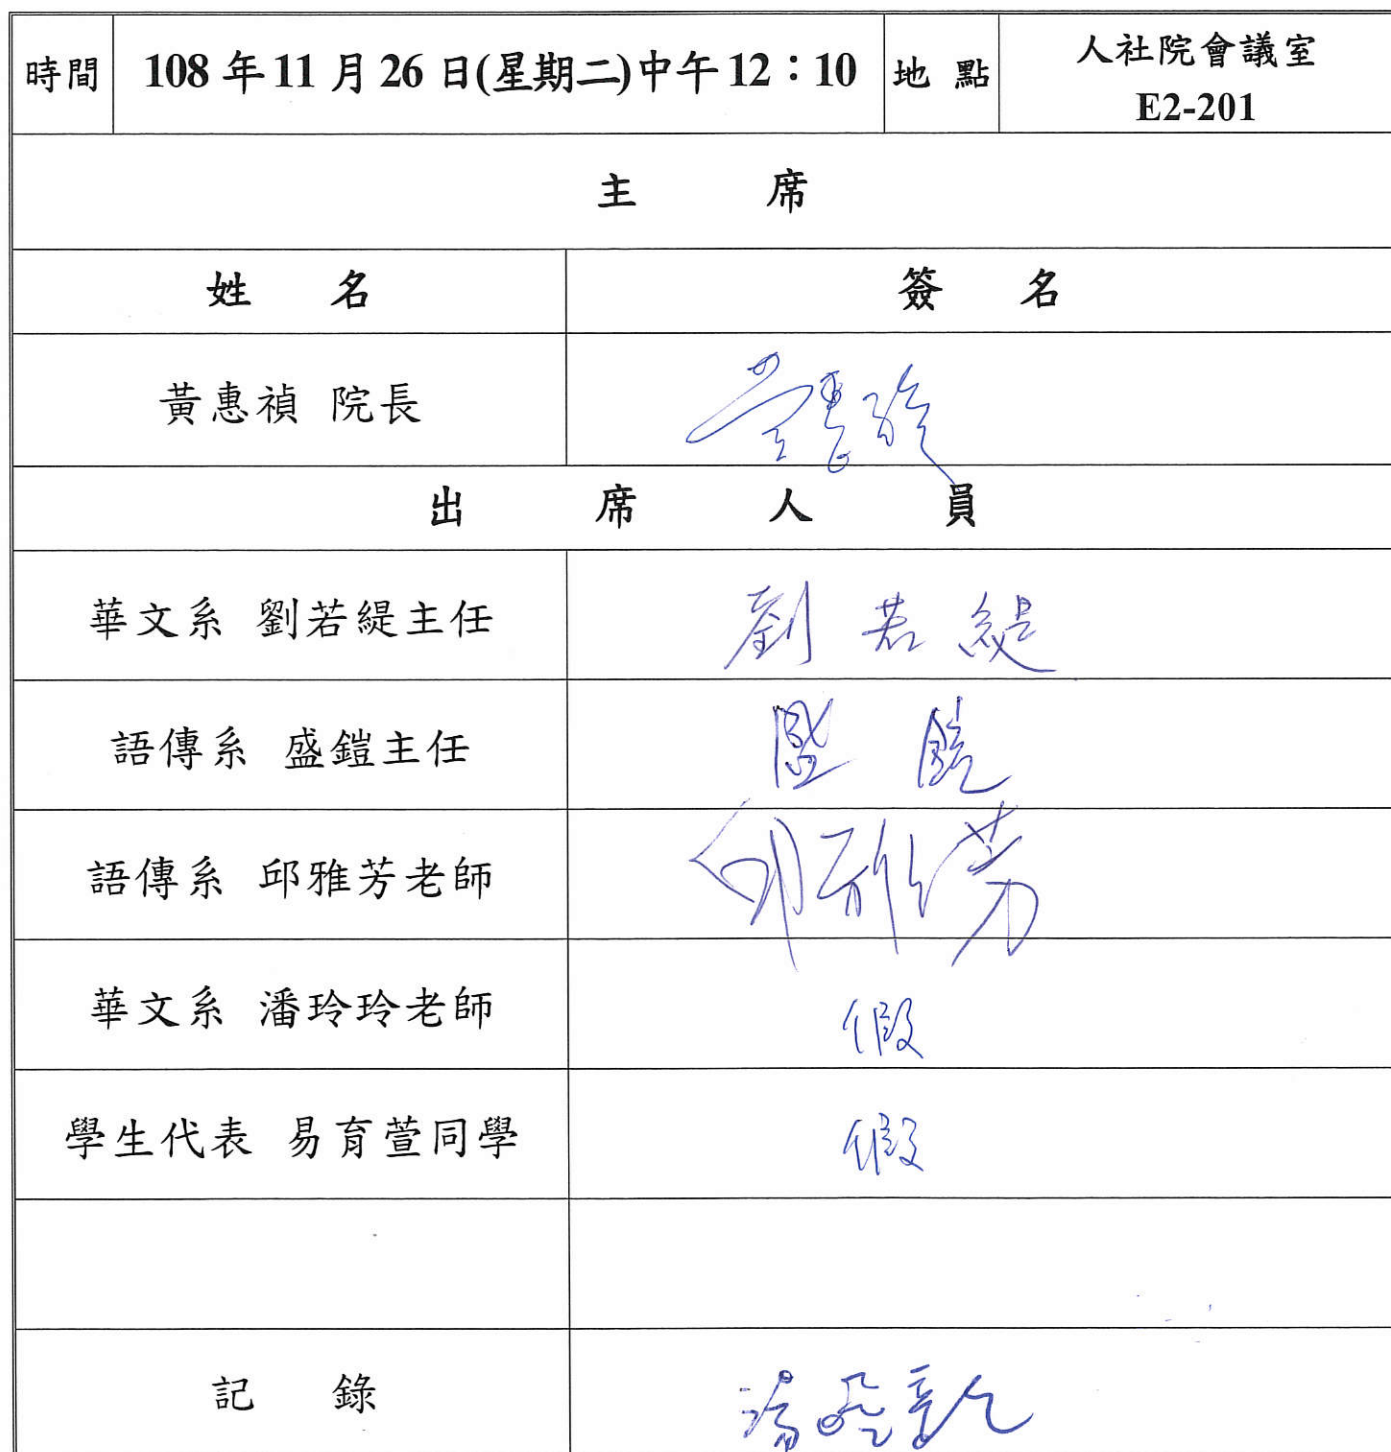 時間 108年11月26日(星期二)中午12：10 地 點 人社院會議室
E2-201
主 席
姓 名 簽 名
黃惠禎 院長 黃惠禎
出 席 人 員
華文系 劉若緹主任 劉若緹
語傳系 盛鎧主任 盛鎧
語傳系 邱雅芳老師 邱雅芳
華文系 潘玲玲老師 假
學生代表 易育萱同學 假
記 錄